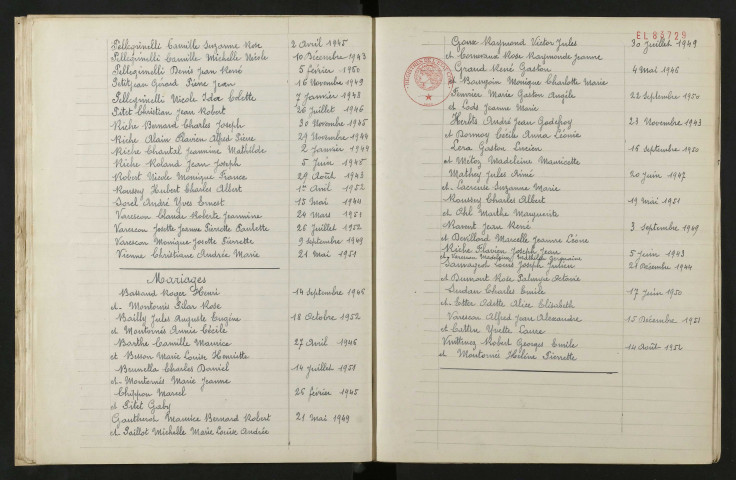 Pellegrinelli Camille Suzanne Rose 2 Avril 1945
Pellegrinelli Camille Michelle Nicole 10 Décembre 1943
Pellegrinelli Denis Jean René 5 février 1950
Petitjean Gérard Pierre Jean 16 Novembre 1949
Pellegrinelli Nicole Ida Colette 7 Janvier 1948
Petit Christian Jean Robert 26 Juillet 1946
Riche Bernard Charles Joseph 30 Novembre 1945
Riche Alain Flavien Alfred Pierre 29 Novembre 1944
Riche Chantal Jeannine Mathilde 2 Janvier 1949
Riche Roland Jean Joseph 5 Juin 1945
Robert Nicole Monique France 29 Août 1943
Roussey Hubert Charles Albert 1er Avril 1952
Sorel André Yves Ernest 15 Mai 1944
Varescon Claude Roberte Jeannine 24 Mars 1951
Varescon Josette Jeanne Pierrette Paulette 26 Juillet 1952
Varescon Monique Josette Pierrette 9 Septembre 1949
Vienne Christiane Andrée Marie 21 Mai 1951
Mariages
Bassand Roger Henri 14 Septembre 1946
et Montornés Pilar Rose
Bailly Jules Auguste Eugène 18 Octobre 1952
et Montornés Annie Cécile
Barthe Camille Maurice 27 Avril 1946
et Besson Marie Louise Henriette
Brunella Charles Daniel 14 Juillet 1951
et Montornés Marie Jeanne
Chippon Marcel 26 février 1945
et Petet Gaby
Gautherot Maurice Bernard Robert 21 Mai 1949
et Paillot Michelle Marie Louise Andrée
EL 83729
Raymond Victor Jules 30 Juillet 1949
et Rose Raymonde Jeanne
Girard René Gaston 4 Mai 1946
et Monique Charlotte Marie
Marie Gaston Angèle 22 Septembre 1950
et Lods Jeanne Marie
André Jean Godefroy 27 Novembre 1943
et Dornoy Cécile Anna Léonie
Lera Gaston Lucien 16 Septembre 1950
et Madeleine Mauricette
Mathey Jules Aimé 20 Juin 1947
et Lacreuse Suzanne Marie
Roussey Charles Albert 19 Mai 1951
et Ohl Marthe Marguerite
Jean René 3 Septembre 1949
et Devillard Marcelle Jeanne Léone
Riche Flavien Joseph Jean 5 Juin 1943
et Mathilde Germaine
Louis Joseph Julien 21 Décembre 1944
et Dumont Rose Octavie
Charles Emile 17 Juin 1950
et Etter Odette Alice Elisabeth
Varescon Alfred Jean Alexandre 15 Décembre 1951
et Yvette Laure
Robert Georges Emile 14 Août 1952
et Montornés Hélène Pierrette